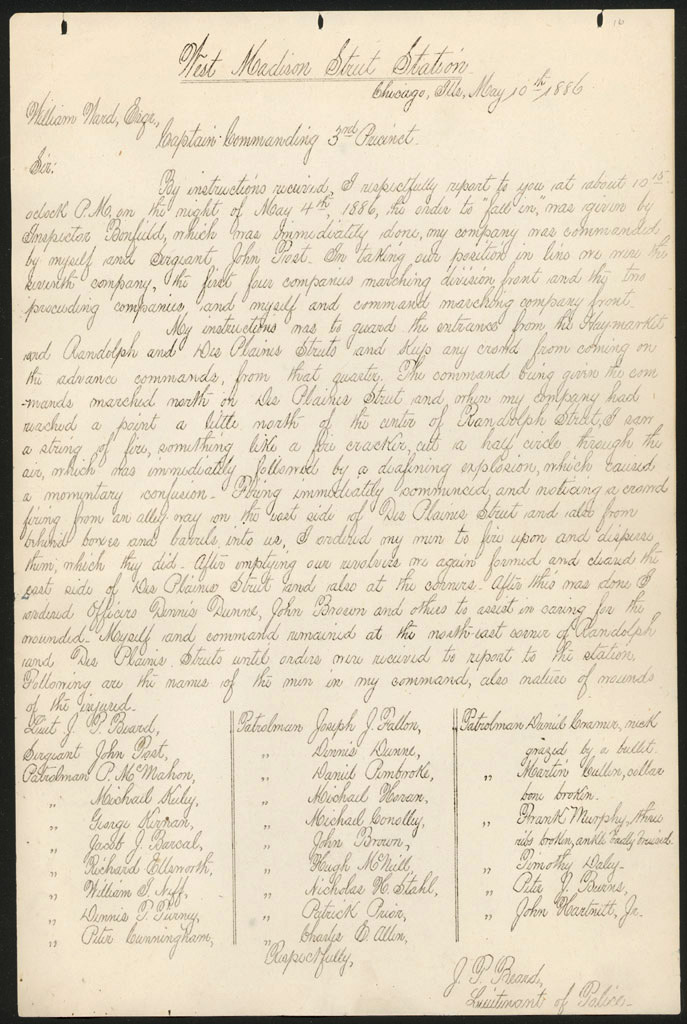 10
West Madison Street Station
Chicago, Ills, May 10th, 1886
William Ward, Esqr,
Captain Commanding 3rd Precinct.
Sir:
By instructions received, I respectfully report to you at about 10 15
oclock P.M. on the night of May 4th, 1886, the order to "fall in," was given by
Inspector Bonfield, which was immediately done, my company was commanded
by myself and Sergeant John Post. In taking our position in line we were the
seventh company, the first four companies marching division front and the two
preceeding companies and myself and command marching company front.
My instructions was to guard the entrance from the Haymarket
and Randolph and Des Plaines Streets and keep any crowd from coming on
the advance commands, from that quarter. The command being given the com
-mands marched north on Des Plaines Street and when my company had
reached a point a little north of the center of Randolph Street, I saw
a string of fire, something like a fire cracker, cut a half circle through the
air, which was immediately followed by a deafining explosion, which caused
a momentary confusion. Firing immediately commenced, and noticing a crowd
firing from an alley way on the east side of Des Plaines Street and also from
behind boxes and barrels, into us, I ordered my men to fire upon and disperse
them, which they did. After emptying our revolvers we again formed and cleared the
east side of Des Plaines Street and also at the corners. After this was done I
ordered Officers Dennis Dunne, John Brown and others to assist in caring for the
wounded. Myself and command remained at the north-east corner of Randolph
and Des Plaines Streets until orders were received to report to the station.
Following are the names of the men in my command, also nature of wounds
of the injured.
Lieut J. P. Beard,
Sergeant John Post,
Patrolman P. McMahon,
" Michael Keley,
" George Kernan,
" Jacob J. Barcal,
" Richard Ellsworth,
" William S. Neff,
" Dennis P. Turney,
" Peter Cunningham,
Patrolman Joseph J. Fallon,
" Dennis Dunne,
" Daniel Pembroke,
" Michael Horan,
" Michael Conolly,
" John Brown,
" Hugh McNeill,
" Nicholas H. Stahl,
" Patrick Prior,
" Charles E. Allen,
Patrolman Daniel Cramer, neck
grazed by a bullet.
" Martin Cullen, collar
bone broken.
" Frank Murphy, three
ribs broken, ankle badly bruised.
" Timothy Daley.
" Peter J. Burns,
" John Hartnett, Jr.
Respectfully,
J. P. Beard,
Lieutenant of Police.